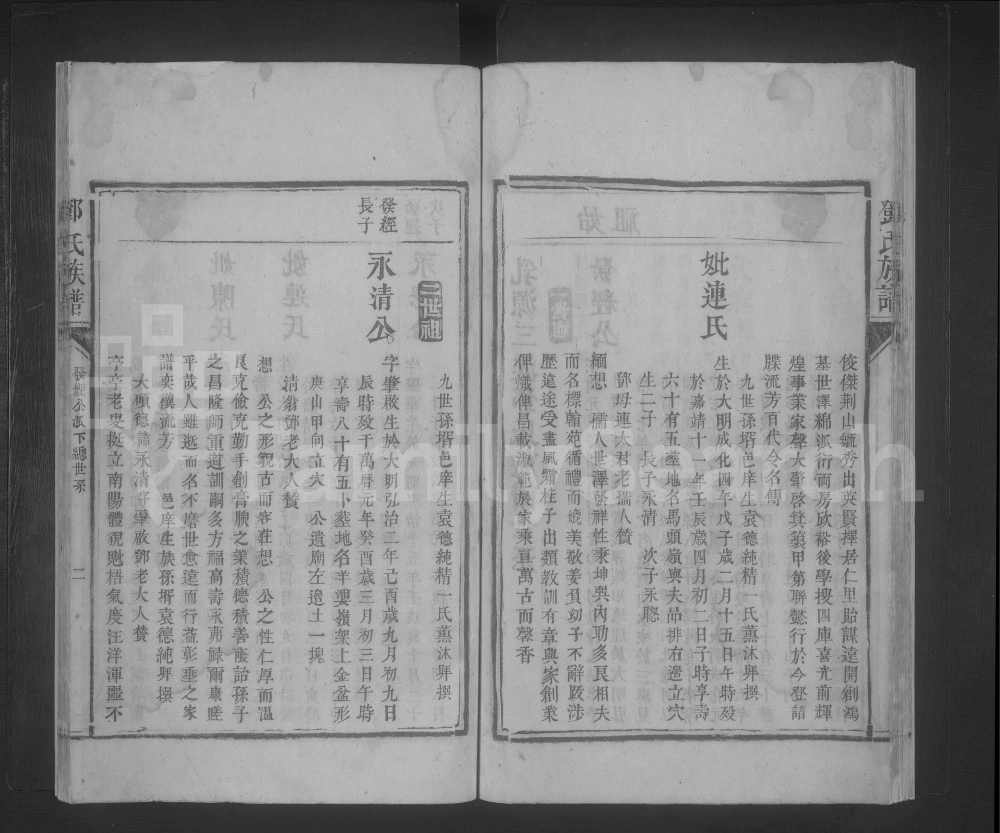 鄧氏族譜
俊傑荆山毓秀出英賢擇居仁里貽謀遠開創鴻
基世澤綿派衍两房欣裕後學搜四庫喜光前輝
煌事業家聲大肇啓箕裘甲第聯懿行於今登譜
牒流芳百代令名傳
九世孫壻邑庠生袁德純精一氏薰沐拜撰
妣連氏
生於大明成化四年戊子歲二月十五日午時殁
於嘉靖十一年壬辰歲四月初二日子時享壽
六十有五塟地名馬頭嶺與夫品排右邉立穴
生二子 長子永清 次子永
鄧母連太君老孺人贊
緬想 孺人世澤發祥性秉坤與內助多艮相夫
而名標翰苑循禮而媲美敬姜負幼子不辭跋涉
歷遠途受盡風霜桂子出類教訓有章與家創業
俾熾俾昌載淑範於家乘亘萬古而馨香
二世祖
發經
長子
永清公
九世孫壻邑庠生袁德純精一氏薰沐拜撰
字肇啟生於大明弘治二年己酉歲九月初九日
辰時殁于萬曆元年癸酉歲三月初三日午時
享壽八十有五卜塟地名羊嶺架上金盆形
庚山甲向立穴 公遺廟左邉土一塊
清翁鄧老大人贊
想 公之形貌古而容莊想 公之性仁厚而溫
良克儉克勤手創膏腴之業積德積善慶詒孫子
之昌隆師重道訓嗣多方福高壽永弗祿爾康嗟
乎哉人雖逝而名不磨世愈遠而行益彰垂之家
譜奕禩流芳 邑庠生族孫壻袁德純拜撰
大碩德諱永清字肇啟鄧老大人贊
亭亭老叟挺立南陽體貌魁梧氣度汪洋渾噩不
鄧氏族譜
發經公派下總世系
二